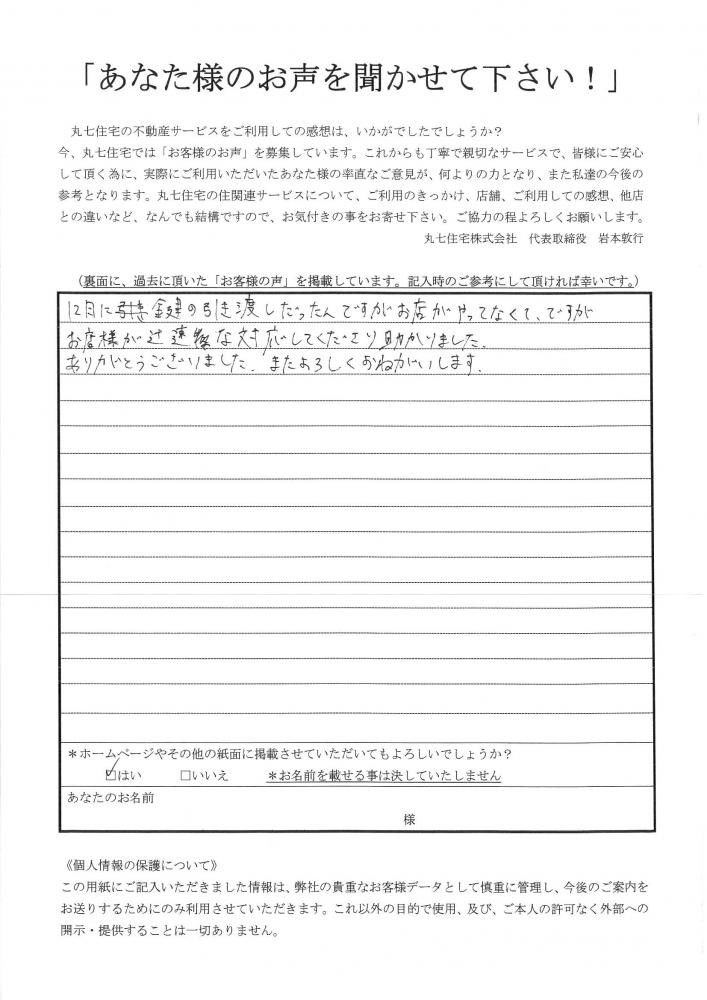 「あなた様のお声を聞かせて下さい！」
丸七住宅の不動産サービスをご利用しての感想は、いかがでしたでしょうか？
今、丸七住宅では「お客様のお声」を募集しています。これからも丁寧で親切なサービスで、皆様にご安心
して頂く為に、実際にご利用いただいたあなた様の率直なご意見が、何よりの力となり、また私達の今後の
参考となります。丸七住宅の住関連サービスについて、ご利用のきっかけ、店舗、ご利用しての感想、他店
との違いなど、なんでも結構ですので、お気付きの事をお寄せ下さい。ご協力の程よろしくお願いします。
丸七住宅株式会社　代表取締役　岩本敦行
（裏面に、過去に頂いた「お客様の声」を掲載しています。記入時のご参考にして頂ければ幸いです。）
12月に 鍵の引き渡しだったんですがお店がやってなくて、ですが
お店様が 迅速な対応してくださり助かりました。
ありがとうございました。またよろしくおねがいします。
＊ホームページやその他の紙面に掲載させていただいてもよろしいでしょうか？
☑はい　□いいえ　＊お名前を載せる事は決していたしません
あなたのお名前
様
《個人情報の保護について》
この用紙にご記入いただきました情報は、弊社の貴重なお客様データとして慎重に管理し、今後のご案内を
お送りするためにのみ利用させていただきます。これ以外の目的で使用、及び、ご本人の許可なく外部への
開示・提供することは一切ありません。